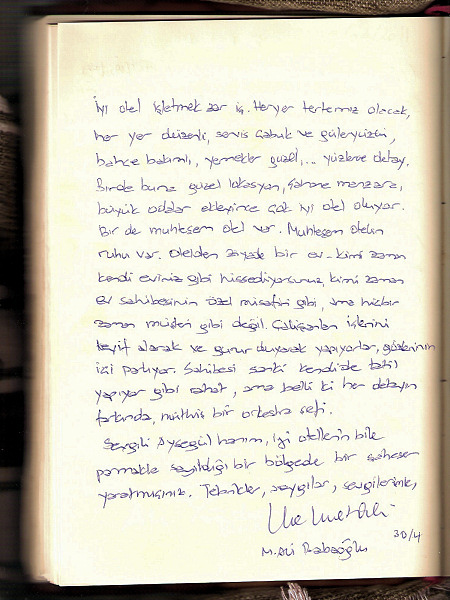 İyi otel işletmek zor iş. Heryer tertemiz olacak,
her yer düzenli, servis çabuk ve güleryüzlü,
bahçe bakımlı, yemekler güzel,... yüzlerce detay.
Birde buna güzel lokasyon, şahane manzara,
büyük odalar ekleyince çok iyi otel oluyor.
Bir de muhteşem otel var. Muhteşem otelin
ruhu var. Otelden ziyade bir ev - kimi zaman
kendi eviniz gibi hissediyorsunuz, kimi zaman
ev sahibesinin özel misafiri gibi, ama hiçbir
zaman müşteri gibi değil. Çalışanlar işlerini
keyif alarak ve gurur duyarak yapıyorlar, gözlerinin
içi parlıyor. Sahibesi sanki kendide tatil
yapıyor gibi rahat, ama belli ki her detayın
farkında, müthiş bir orkestra şefi.
Sevgili Ayşegül hanım, iyi otellerin bile
parmakla sayıldığı bir bölgede bir şaheser
yaratmışsınız. Tebrikler, saygılar, sevgilerimle,
M. Ali Babaoğlu
30/4